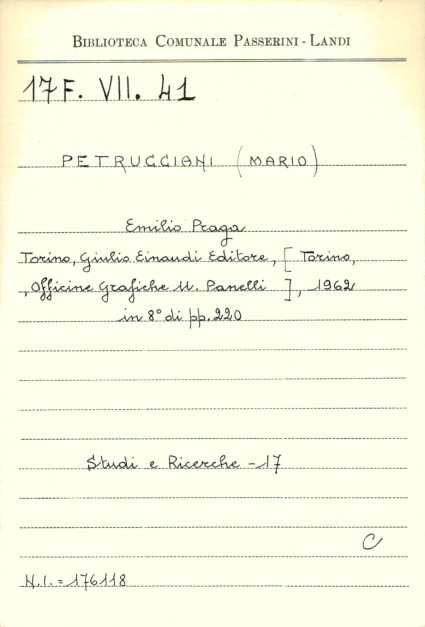 BIBLIOTECA COMUNALE PASSERINI - LANDI
17F. VII. 41
PETRUCCIANI (MARIO)
Emilio Praga
Torino, Giulio Einaudi Editore, [Torino,
, Officine Grafiche U. Panelli], 1962
in 8° di pp. 220
Studi e Ricerche - 17
C
N.I. = 176118